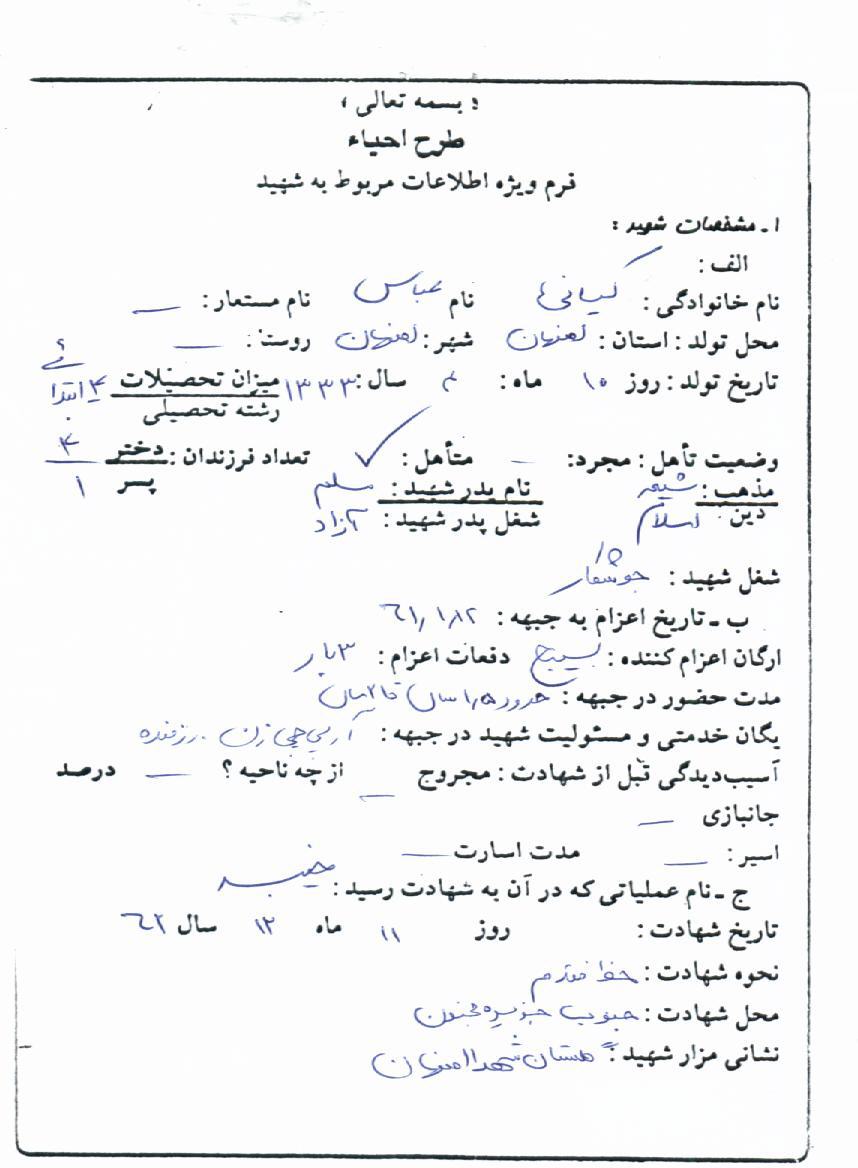 « بسمه تعالی »
طرح احیاء
فرم ویژه اطلاعات مربوط به شهید
۱ ـ مشخصات شهید :
الف :
نام خانوادگی : کیانی نام عباس نام مستعار : ــ
محل تولد : استان : اصفهان شهر : اصفهان روستا : ــ
تاریخ تولد : روز ۱۰ ماه : ۴ سال : ۱۳۳۳ میزان تحصیلات ۴ ابتدائی
رشته تحصیلی
وضعیت تأهل : مجرد : ــ متأهل : ✓ تعداد فرزندان : دختر ۴
پسر ۱
مذهب : شیعه نام پدر شهید : مسلم
دین اسلام شغل پدر شهید : آزاد
شغل شهید : جوشکار
ب ـ تاریخ اعزام به جبهه : ۶۱/۱/۱۲
ارگان اعزام کننده : بسیج دفعات اعزام : ۳ بار
مدت حضور در جبهه : حدود ۱/۵ سال تا ۲ سال
یگان خدمتی و مسئولیت شهید در جبهه : آرپی‌جی زن . رزمنده
آسیب‌دیدگی قبل از شهادت : مجروح ــ از چه ناحیه ؟ ــ درصد
جانبازی ــ
اسیر : ــ مدت اسارت ــ
ج ـ نام عملیاتی که در آن به شهادت رسید : خیبر
تاریخ شهادت : روز ۱۱ ماه ۱۲ سال ۶۲
نحوه شهادت : خط مقدم
محل شهادت : جنوب جزیره مجنون
نشانی مزار شهید : گلستان شهدا اصفهان